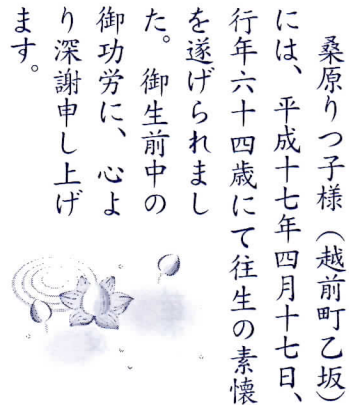 桑原りつ子様（越前町乙坂）
には、平成十七年四月十七日、
行年六十四歳にて往生の素懐
を遂げられまし
た。御生前中の
御功労に、心よ
り深謝申し上げ
ます。